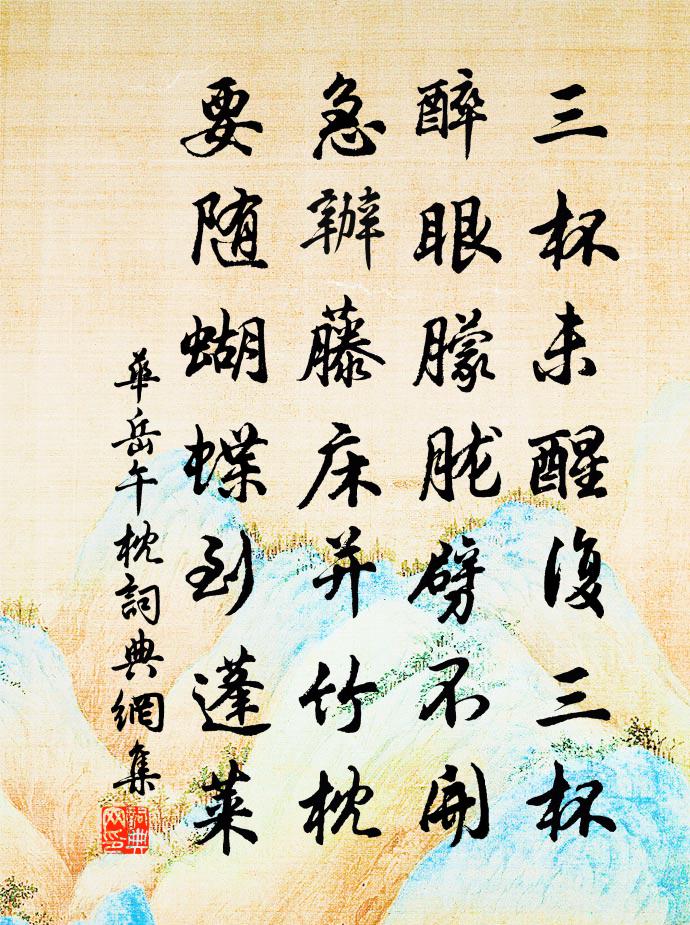 三杯未醒復三杯
醉眼朦朧劈不開
急辦藤床并竹枕
要随蝴蝶到蓬莱
華岳午枕詞典網集
詞典
网印